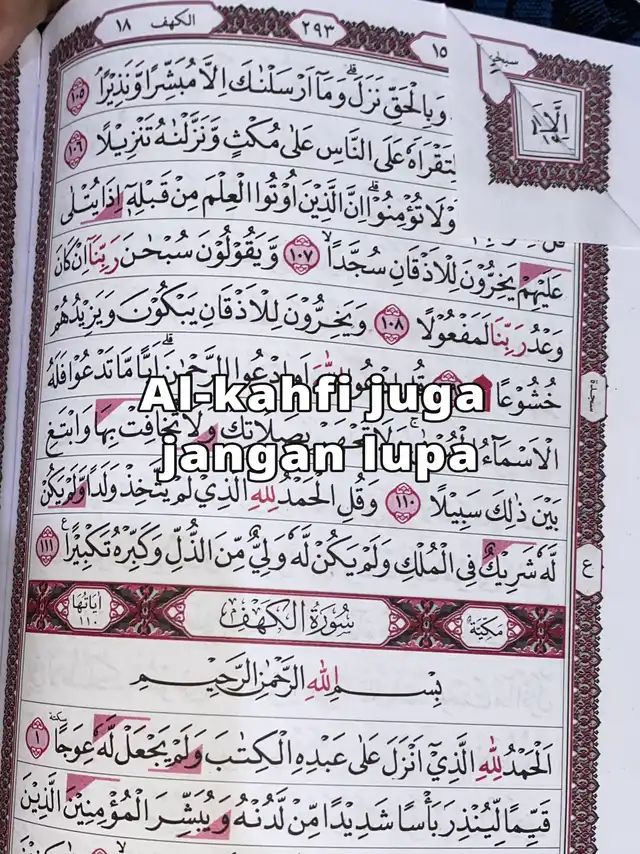 ١٨ الكهف ٢٩٣ ١٥
وَبِالْحَقِّ نَزَلَ ۗ وَمَآ اَرْسَلْنٰكَ اِلَّا مُبَشِّرًا وَّنَذِيْرًا ۝١٠٥
لِتَقْرَاَهٗ عَلَى النَّاسِ عَلٰى مُكْثٍ وَّنَزَّلْنٰهُ تَنْزِيْلًا ۝١٠٦
اَوْ لَا تُؤْمِنُوْا ۗ اِنَّ الَّذِيْنَ اُوْتُوا الْعِلْمَ مِنْ قَبْلِهٖٓ اِذَا يُتْلٰى
عَلَيْهِمْ يَخِرُّوْنَ لِلْاَذْقَانِ سُجَّدًا ۙ ۝١٠٧ وَّيَقُوْلُوْنَ سُبْحٰنَ رَبِّنَآ اِنْ كَانَ
وَعْدُ رَبِّنَا لَمَفْعُوْلًا ۝١٠٨ وَيَخِرُّوْنَ لِلْاَذْقَانِ يَبْكُوْنَ وَيَزِيْدُهُمْ
خُشُوْعًا اللّٰهَ اَوِ ادْعُوا الرَّحْمٰنَ ۗ اَيًّا مَّا تَدْعُوْا فَلَهُ
الْاَسْمَاۤءُ بِصَلَاتِكَ وَلَا تُخَافِتْ بِهَا وَابْتَغِ
بَيْنَ ذٰلِكَ سَبِيْلًا ۝١١٠ وَقُلِ الْحَمْدُ لِلّٰهِ الَّذِيْ لَمْ يَتَّخِذْ وَلَدًا وَّلَمْ يَكُنْ
لَّهٗ شَرِيْكٌ فِى الْمُلْكِ وَلَمْ يَكُنْ لَّهٗ وَلِيٌّ مِّنَ الذُّلِّ وَكَبِّرْهُ تَكْبِيْرًا ࣖ ۝١١١
Al-kahfi juga
jangan lupa
سجدة
ع
مكية سورة الكهف اياتها ١١٠
بِسْمِ اللّٰهِ الرَّحْمٰنِ الرَّحِيْمِ
اَلْحَمْدُ لِلّٰهِ الَّذِيْٓ اَنْزَلَ عَلٰى عَبْدِهِ الْكِتٰبَ وَلَمْ يَجْعَلْ لَّهٗ عِوَجًا ۜ ۝١
قَيِّمًا لِّيُنْذِرَ بَأْسًا شَدِيْدًا مِّنْ لَّدُنْهُ وَيُبَشِّرَ الْمُؤْمِنِيْنَ الَّذِيْنَ